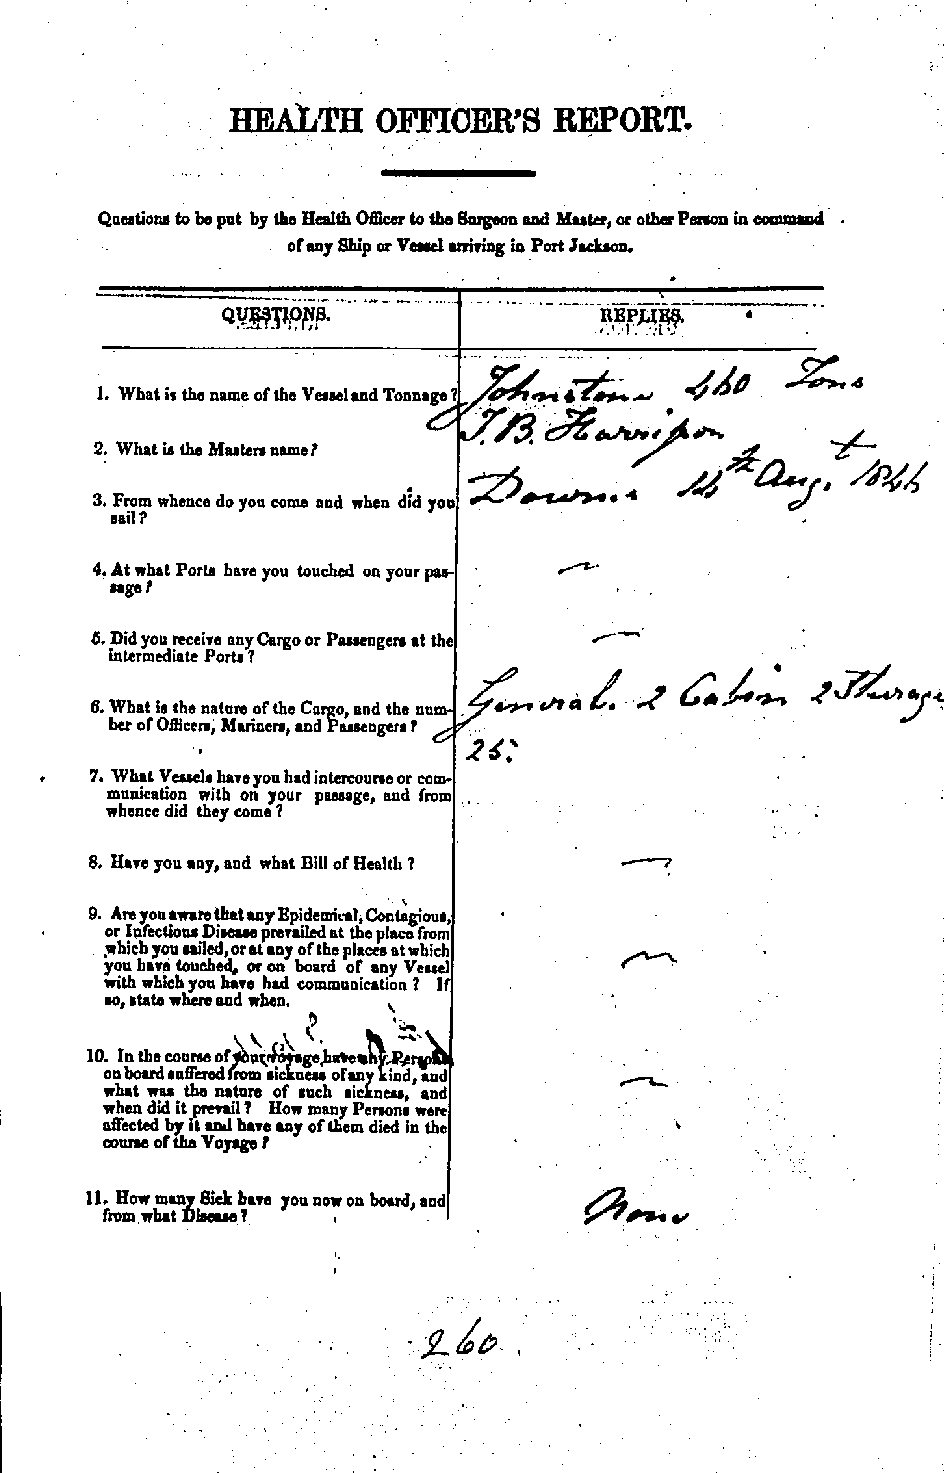 HEALTH OFFICER'S REPORT.
Questions to be put by the Health Officer to the Surgeon and Master, or other Person in command
of any Ship or Vessel arriving in Port Jackson.
QUESTIONS. REPLIES.
1. What is the name of the Vessel and Tonnage? Johnstone 460 Tons
2. What is the Masters name? J.B. Harrison
3. From whence do you come and when did you Downs 14th Augt 1846
sail?
4. At what Ports have you touched on your pas- ~
sage?
5. Did you receive any Cargo or Passengers at the —
intermediate Ports?
6. What is the nature of the Cargo, and the num- General. 2 Cabin 2 Sturage
ber of Officers, Mariners, and Passengers? 25.
7. What Vessels have you had intercourse or com-
munication with on your passage, and from
whence did they come?
8. Have you any, and what Bill of Health? —
9. Are you aware that any Epidemical, Contagious,
or Infectious Disease prevailed at the place from
which you sailed, or at any of the places at which
you have touched, or on board of any Vessel ~
with which you have had communication? If
so, state where and when.
10. In the course of your voyage, have any Persons
on board suffered from sickness of any kind, and ~
what was the nature of such sickness, and
when did it prevail? How many Persons were
affected by it and have any of them died in the
course of the Voyage?
11. How many Sick have you now on board, and None
from what Disease?
260